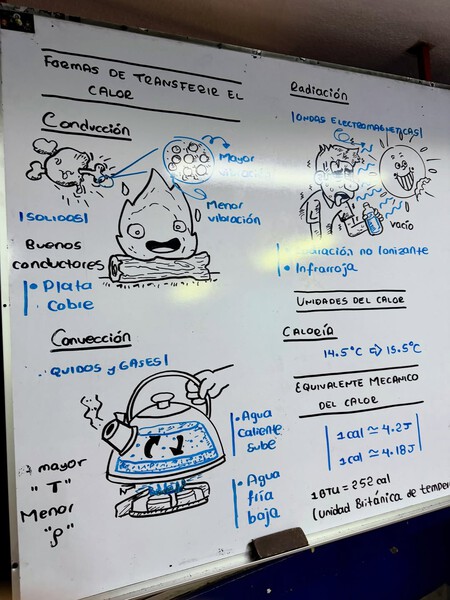 FORMAS DE TRANSFERIR EL
CALOR
Conducción
Mayor
Menor
vibración
|SOLIDOS|
Buenos
conductores
• Plata
Cobre
Convección
QUIDOS y GASES|
• Agua
caliente
sube
• Agua
fría
baja
mayor
"T"
Menor
"ρ"
Radiación
|ONDAS ELECTROMAGNETICAS|
vacío
no Ionizante
• Infrarroja
UNIDADES DEL CALOR
CALORÍA
14.5°C ⇨ 15.5°C
EQUIVALENTE MECANICO
DEL CALOR
1 cal ≃ 4.2J
1 cal ≃ 4.18J
1BTU = 252 cal
(unidad Británica de temper